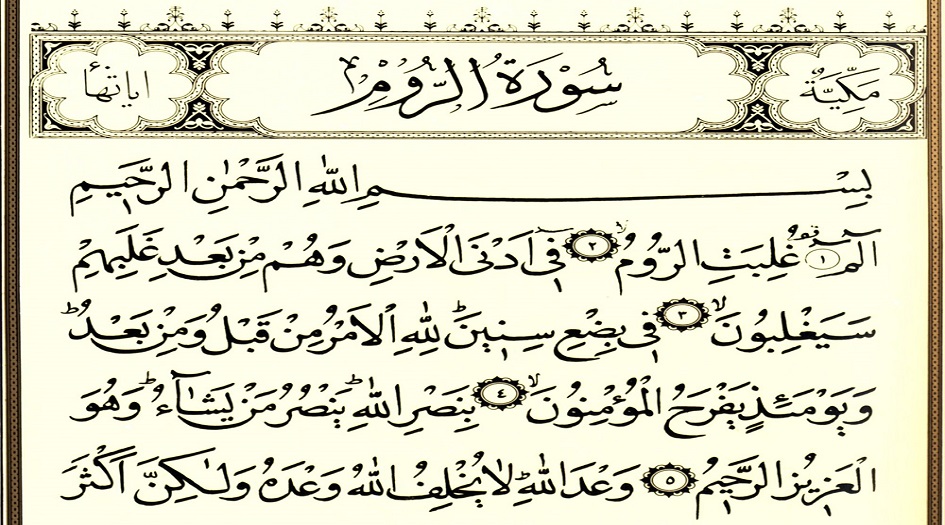 مَكِّيَّةٌ سُوْرَةُ الرُّوْمِ اٰيَاتُهَا
بِسْمِ اللّٰهِ الرَّحْمٰنِ الرَّحِيْمِ
الٓمّٓ ١ غُلِبَتِ الرُّوْمُ ٢ فِيْٓ اَدْنَى الْاَرْضِ وَهُمْ مِنْ بَعْدِ غَلَبِهِمْ
سَيَغْلِبُونَ ٣ فِي بِضْعِ سِنِينَ لِلّٰهِ الْاَمْرُ مِنْ قَبْلُ وَمِنْ بَعْدُ
وَيَوْمَئِذٍ يَفْرَحُ الْمُؤْمِنُونَ ٤ بِنَصْرِ اللّٰهِ يَنْصُرُ مَنْ يَشَٓاءُ وَهُوَ
الْعَزِيزُ الرَّحِيمُ ٥ وَعْدَ اللّٰهِ لَا يُخْلِفُ اللّٰهُ وَعْدَهُ وَلٰكِنَّ اَكْثَرَ